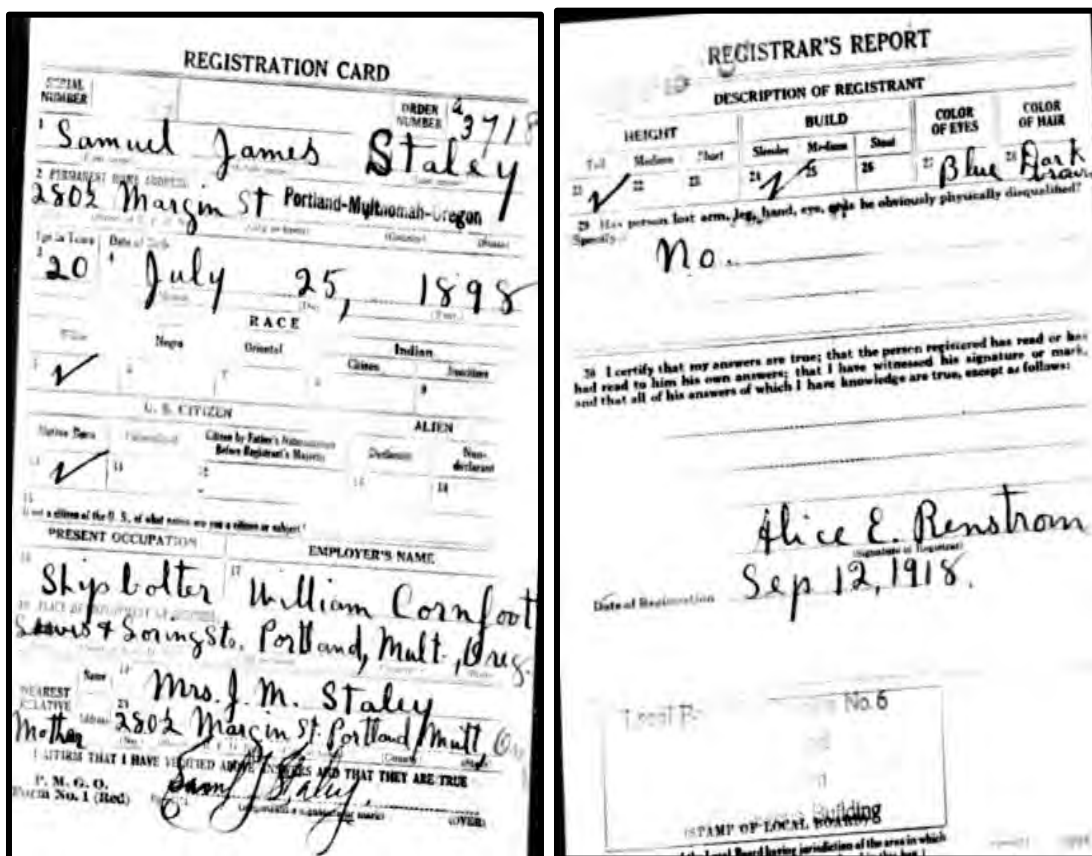 REGISTRATION CARD
SERIAL NUMBER
ORDER NUMBER a 3718
1 Samuel James Staley
2 PERMANENT HOME ADDRESS
280½ Margin St Portland-Multnomah-Oregon
Age in Years Date of Birth
3 20 4 July 25, 1898
RACE
White Negro Oriental Indian
Citizen Noncitizen
5 ✓ 6 7 8 9
U. S. CITIZEN ALIEN
Native Born Naturalized Citizen by Father's Naturalization Before Registrant's Majority Declarant Non-declarant
10 ✓ 11 12 13 14
15
If not a citizen of the U. S., of what nation are you a citizen or subject?
PRESENT OCCUPATION EMPLOYER'S NAME
16 Ship bolter 17 William Cornfoot
18 PLACE OF EMPLOYMENT OR BUSINESS
Portland, Mult., Oreg.
NEAREST RELATIVE
Name 19 Mrs. J. M. Staley
Mother Address 20 280½ Margin St. Portland Mult,
I AFFIRM THAT I HAVE VERIFIED ABOVE ANSWERS AND THAT THEY ARE TRUE
P. M. G. O.
Form No. 1 (Red)
Saml J Staley
(Registrant's signature or mark) (OVER)
REGISTRAR'S REPORT
DESCRIPTION OF REGISTRANT
HEIGHT BUILD COLOR OF EYES COLOR OF HAIR
Tall Medium Short Slender Medium Stout
21 ✓ 22 23 24 ✓ 25 26 27 Blue 28 Dark Brown
29 Has person lost arm, leg, hand, eye, or is he obviously physically disqualified?
Specify.
No.
30 I certify that my answers are true; that the person registered has read or has
had read to him his own answers; that I have witnessed his signature or mark,
and that all of his answers of which I have knowledge are true, except as follows:
Alice E. Renstrom
(Signature of Registrar)
Date of Registration Sep 12, 1918.
Local No. 6
Building
(STAMP OF LOCAL BOARD)
the Local Board having jurisdiction of the area in which